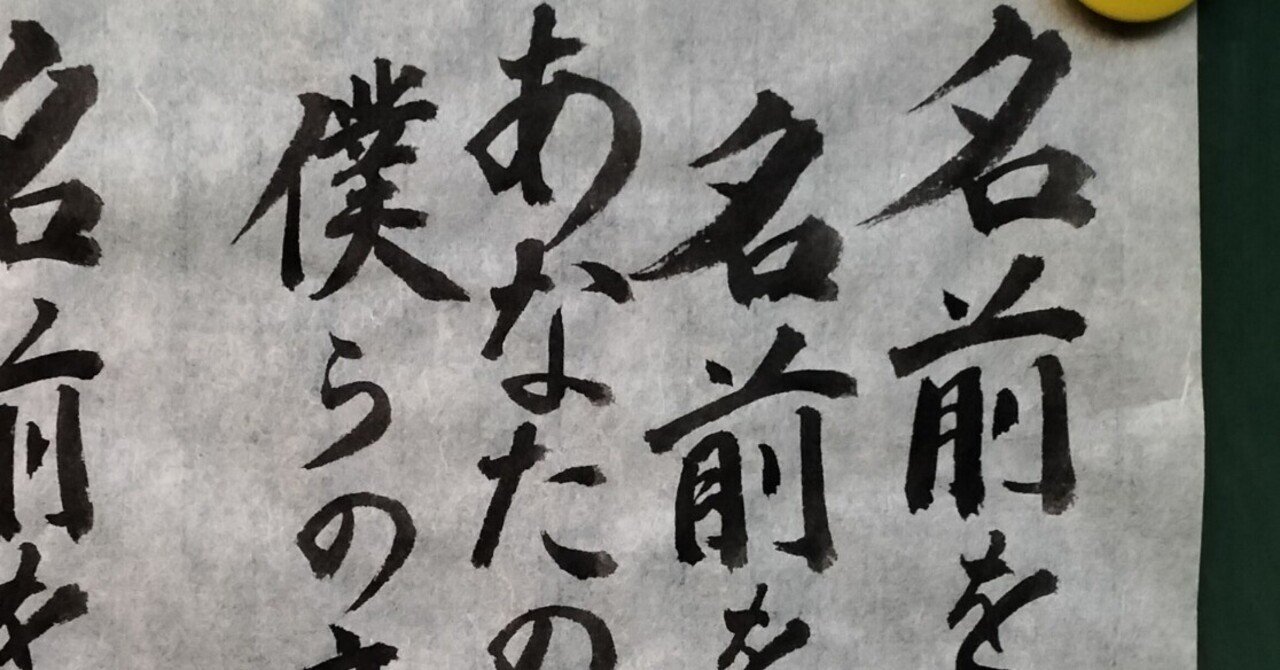 名前を
名前を
あなたの
僕らの
名前を